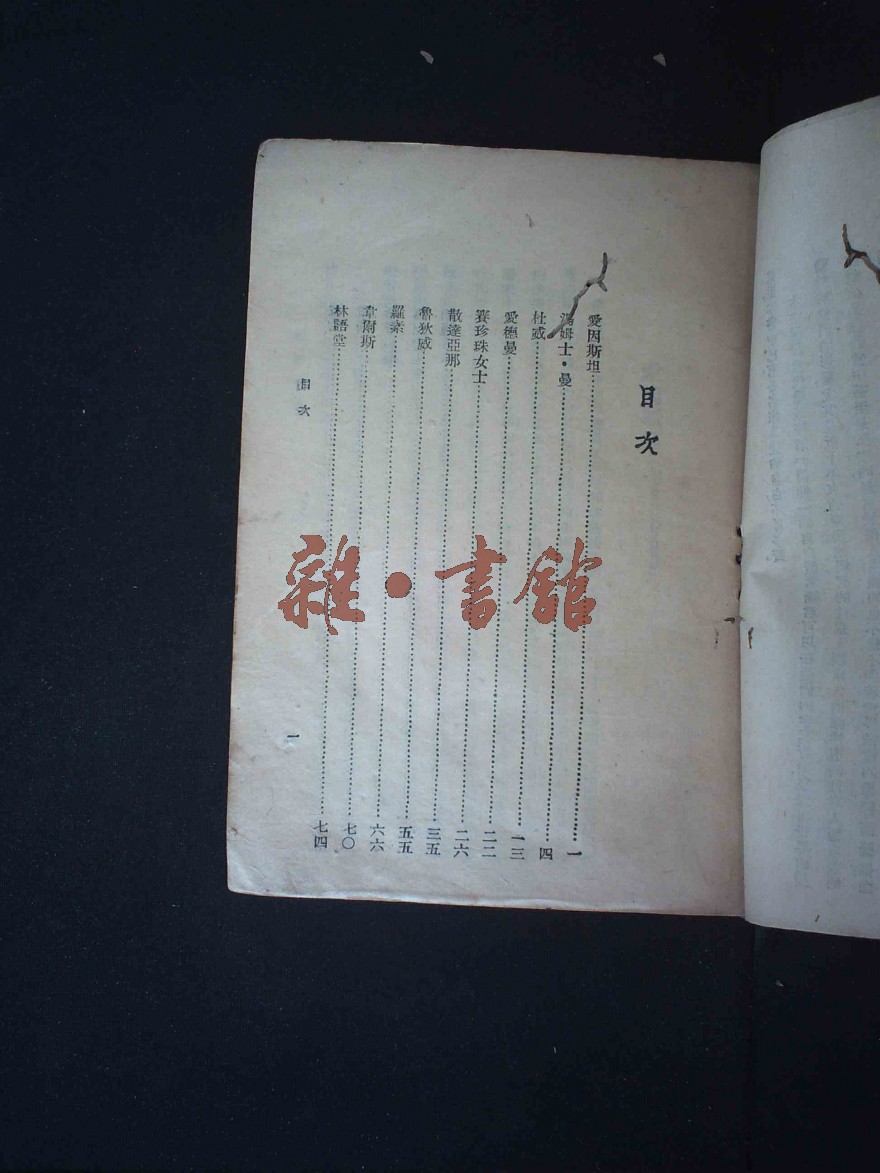 目次
愛因斯坦……一
湯姆士·曼……四
杜威……一三
愛德曼……二二
賽珍珠女士……二六
散達亞那……三五
魯狄威……五五
羅素……六六
韋爾斯……七〇
林語堂……七四
目次
一
雜·書館